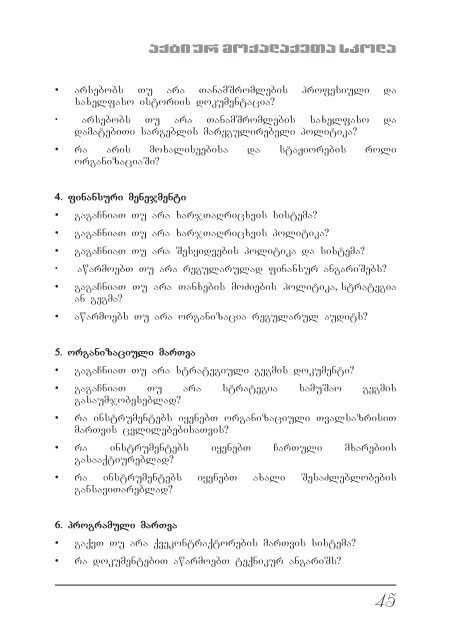 აქტიურ მოქალაქეთა სკოლა
• არსებობს თუ არა თანამშრომლების პროფესიული და
სახელფასო ისტორიის დოკუმენტაცია?
· არსებობს თუ არა თანამშრომლების სახელფასო და
დამატებითი სარგებლის მარეგულირებელი პოლიტიკა?
• რა არის მოხალისეებისა და სტაჟიორების როლი
ორგანიზაციაში?
4. ფინანსური მენეჯმენტი
• გაგაჩნიათ თუ არა ხარჯთაღრიცხვის სისტემა?
• გაგაჩნიათ თუ არა ხარჯთაღრიცხვის პოლიტიკა?
• გაგაჩნიათ თუ არა შესყიდვების პოლიტიკა და სისტემა?
· აწარმოებთ თუ არა რეგულარულად ფინანსურ ანგარიშებს?
• გაგაჩნიათ თუ არა თანხების მოძიების პოლიტიკა, სტრატეგია
ან გეგმა?
• აწარმოებს თუ არა ორგანიზაცია რეგულარულ აუდიტს?
5. ორგანიზაციული მართვა
• გაგაჩნიათ თუ არა სტრატეგიული გეგმის დოკუმენტი?
• გაგაჩნიათ თუ არა სტრატეგია სამუშაო გეგმის
გასაუმჯობესებლად?
• რა ინსტრუმენტებს იყენებთ ორგანიზაციული თვალსაზრისით
მართვის ცვლილებებისათვის?
• რა ინსტრუმენტებს იყენებთ ჩართული მხარეების
გასააქტიურებლად?
• რა ინსტრუმენტებს იყენებთ ახალი შესაძლებლობების
განსავითარებლად?
6. პროგრამული მართვა
• გაქვთ თუ არა ქვეკონტრაქტორების მართვის სისტემა?
• რა დოკუმენტებით აწარმოებთ ტექნიკურ ანგარიშს?
45